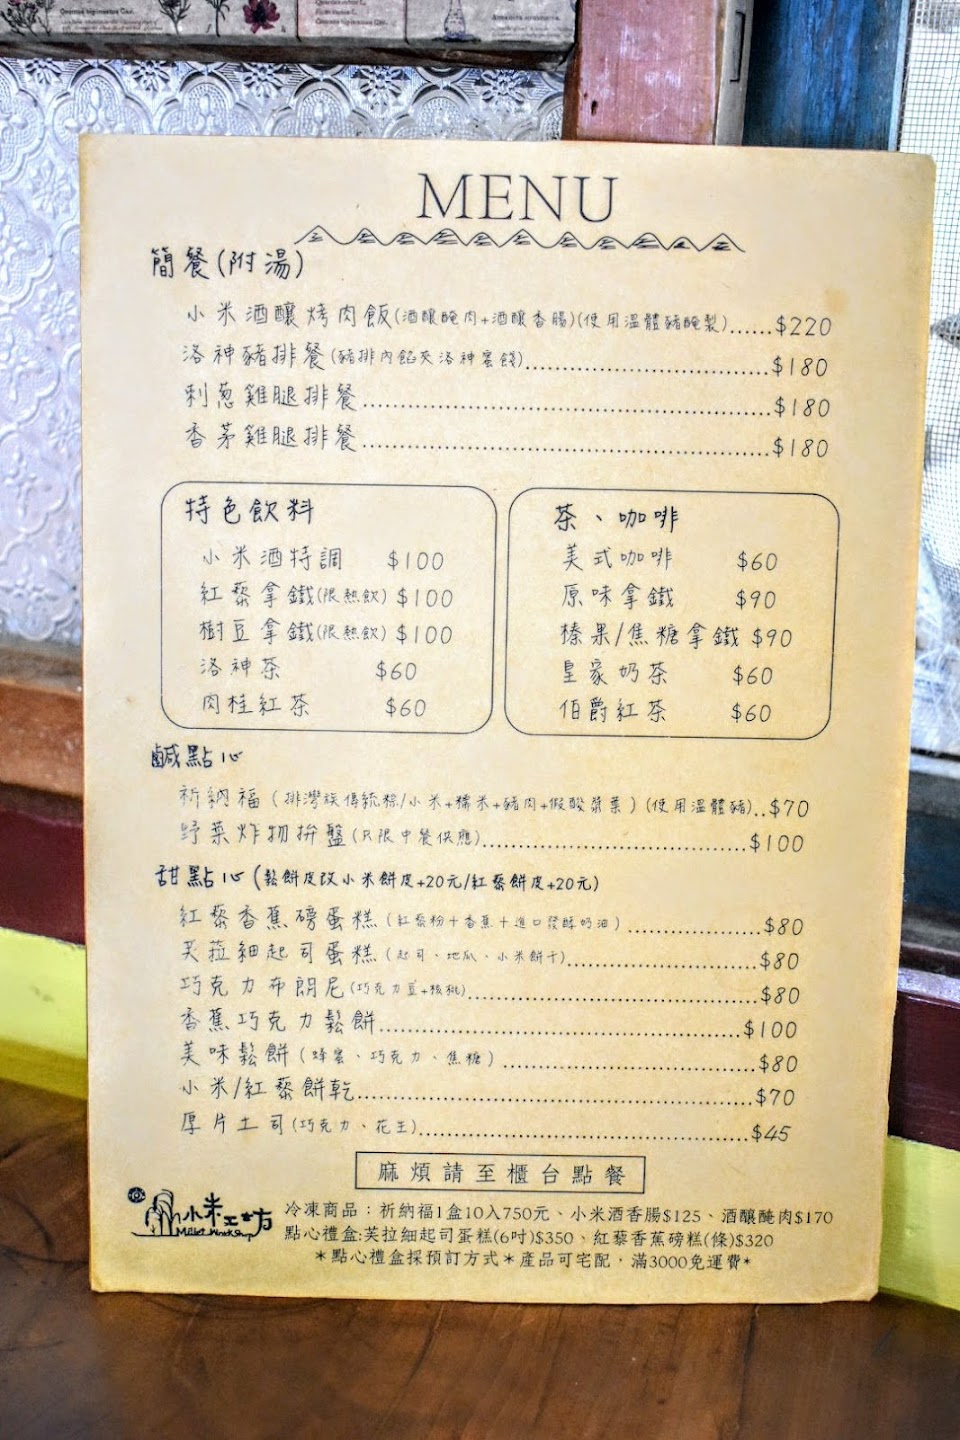 MENU
簡餐(附湯)
小米酒釀烤肉飯(酒釀醃肉+酒釀香腸)(使用溫體豬醃製)......$220
洛神豬排餐(豬排內餡夾洛神蜜餞)..............................$180
刺蔥雞腿排餐..................................................$180
香茅雞腿排餐..................................................$180
特色飲料
小米酒特調 $100
紅藜拿鐵(限熱飲) $100
樹豆拿鐵(限熱飲) $100
洛神茶 $60
肉桂紅茶 $60
茶、咖啡
美式咖啡 $60
原味拿鐵 $90
榛果/焦糖拿鐵 $90
皇家奶茶 $60
伯爵紅茶 $60
鹹點心
祈納福(排灣族傳統粽/小米+糯米+豬肉+假酸漿葉)(使用溫體豬)..$70
野菜炸物拼盤(只限中餐供應)................................$100
甜點心(鬆餅皮改小米餅皮+20元/紅藜餅皮+20元)
紅藜香蕉磅蛋糕(紅藜粉+香蕉+進口發酵奶油)..................$80
芙菈細起司蛋糕(起司、地瓜、小米餅干)........................$80
巧克力布朗尼(巧克力豆+核桃)....................................$80
香蕉巧克力鬆餅..............................................$100
美味鬆餅(蜂蜜、巧克力、焦糖)................................$80
小米/紅藜餅乾................................................$70
厚片土司(巧克力、花生)..........................................$45
麻煩請至櫃台點餐
小米工坊
Millet Workshop
冷凍商品：祈納福1盒10入750元、小米酒香腸$125、酒釀醃肉$170
點心禮盒:芙拉細起司蛋糕(6吋)$350、紅藜香蕉磅糕(條)$320
＊點心禮盒採預訂方式＊產品可宅配，滿3000免運費*